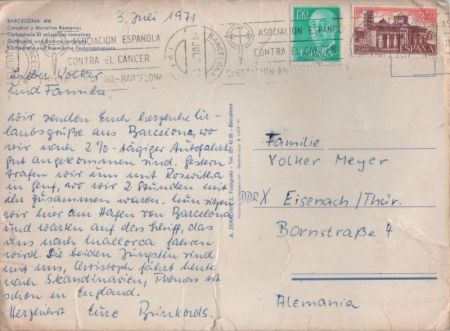 BARCELONA
Catedral y Murallas Romanas
3. Juli 1971
ASOCIACION ESPAÑOLA
CONTRA EL CANCER
BARCELONA
ASOCIACION ESPAÑOLA
CONTRA EL CANCER
CUESTACION AN
1,50
ESPAÑA
Lieber Volker
und Familie
wir senden Euch herzliche Ur-
laubsgrüße aus Barcelona, wo
wir nach 2 1/2-tägiger Autofahrt
gut angekommen sind. Gestern
trafen wir uns mit Roswitha
in Genf, wo wir 2 Stunden mit
ihr zusammen waren. Nun sitzen
wir hier am Hafen von Barcelona
und warten auf das Schiff, das
uns nach Mallorca fahren
wird. Die beiden Jüngsten sind
mit uns, Christoph fährt heute
nach Skandinavien, Thomas ist
schon in England.
Herzlichst Eure Brinkords.
Familie
Volker Meyer
DDR X Eisenach/Thür.
Bornstraße 4
Alemania